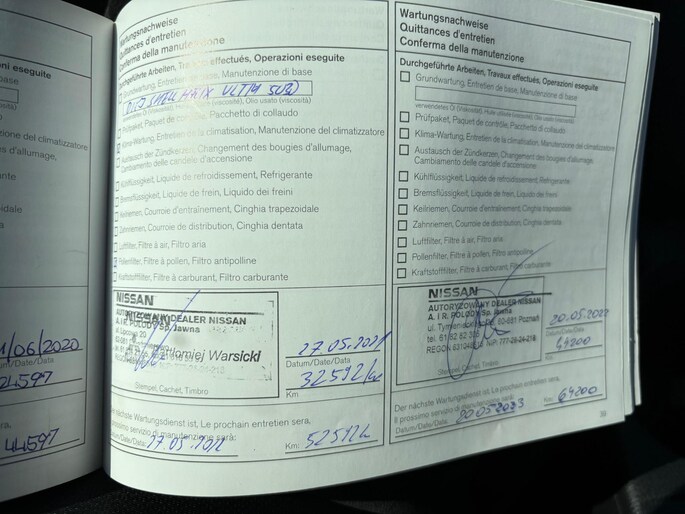 eseguite
base
(viscosità)
del climatizzatore
d'allumage,
zoidale
ata
1/06/2020
Datum/Date/Data
24597
44597
Wartungsnachweise
Quittances d'entretien
Conferma della manutenzione
Durchgeführte Arbeiten, Travaux effectués, Operazioni eseguite
Grundwartung, Entretien de base, Manutenzione di base
SHELL HELIX ULTRA 5W30
verwendetes Öl (Viscosität), Huile utilisée (viscosité), Olio usato (viscosità)
Prüfpaket, Paquet de contrôle, Pacchetto di collaudo
Klima-Wartung, Entretien de la climatisation, Manutenzione del climatizzatore
Austausch der Zündkerzen, Changement des bougies d'allumage,
Cambiamento delle candele d'accensione
Kühlflüssigkeit, Liquide de refroidissement, Refrigerante
Bremsflüssigkeit, Liquide de frein, Liquido dei freini
Keilriemen, Courroie d'entraînement, Cinghia trapezoidale
Zahnriemen, Courroie de distribution, Cinghia dentata
Luftfilter, Filtre à air, Filtro aria
Pollenfilter, Filtre à pollen, Filtro antipolline
Kraftstofffilter, Filtre à carburant, Filtro carburante
NISSAN
DEALER NISSAN
A. I R. POLODY Sp. Jawna
łomiej Warsicki
Stempel, Cachet, Timbro
27.05.2021
Datum/Date/Data
32592
Km
Der nächste Wartungsdienst ist, Le prochain entretien sera,
Il prossimo servizio di manutenzione sarà:
Datum/Date/Data: 27.05.
Km: 52592
Wartungsnachweise
Quittances d'entretien
Conferma della manutenzione
Durchgeführte Arbeiten, Travaux effectués, Operazioni eseguite
Grundwartung, Entretien de base, Manutenzione di base
verwendetes Öl (Viscosität), Huile utilisée (viscosité), Olio usato (viscosità)
Prüfpaket, Paquet de contrôle, Pacchetto di collaudo
Klima-Wartung, Entretien de la climatisation, Manutenzione del climatizzatore
Austausch der Zündkerzen, Changement des bougies d'allumage,
Cambiamento delle candele d'accensione
Kühlflüssigkeit, Liquide de refroidissement, Refrigerante
Bremsflüssigkeit, Liquide de frein, Liquido dei freini
Keilriemen, Courroie d'entraînement, Cinghia trapezoidale
Zahnriemen, Courroie de distribution, Cinghia dentata
Luftfilter, Filtre à air, Filtro aria
Pollenfilter, Filtre à pollen, Filtro antipolline
Kraftstofffilter, Filtre à carburant, Filtro carburante
NISSAN
AUTORYZOWANY DEALER NISSAN
A. I R. POLODY Sp. Jawna
Poznań
tel. 61 82
REGON 63104 NIP: 777-26-24-218
Stempel, Cachet, Timbro
20.05.2022
Datum/Date/Data
64200
Km
Der nächste Wartungsdienst ist, Le prochain entretien sera,
Il prossimo servizio di manutenzione sarà:
Datum/Date/Data: 20.05.2023
Km: 64200
39